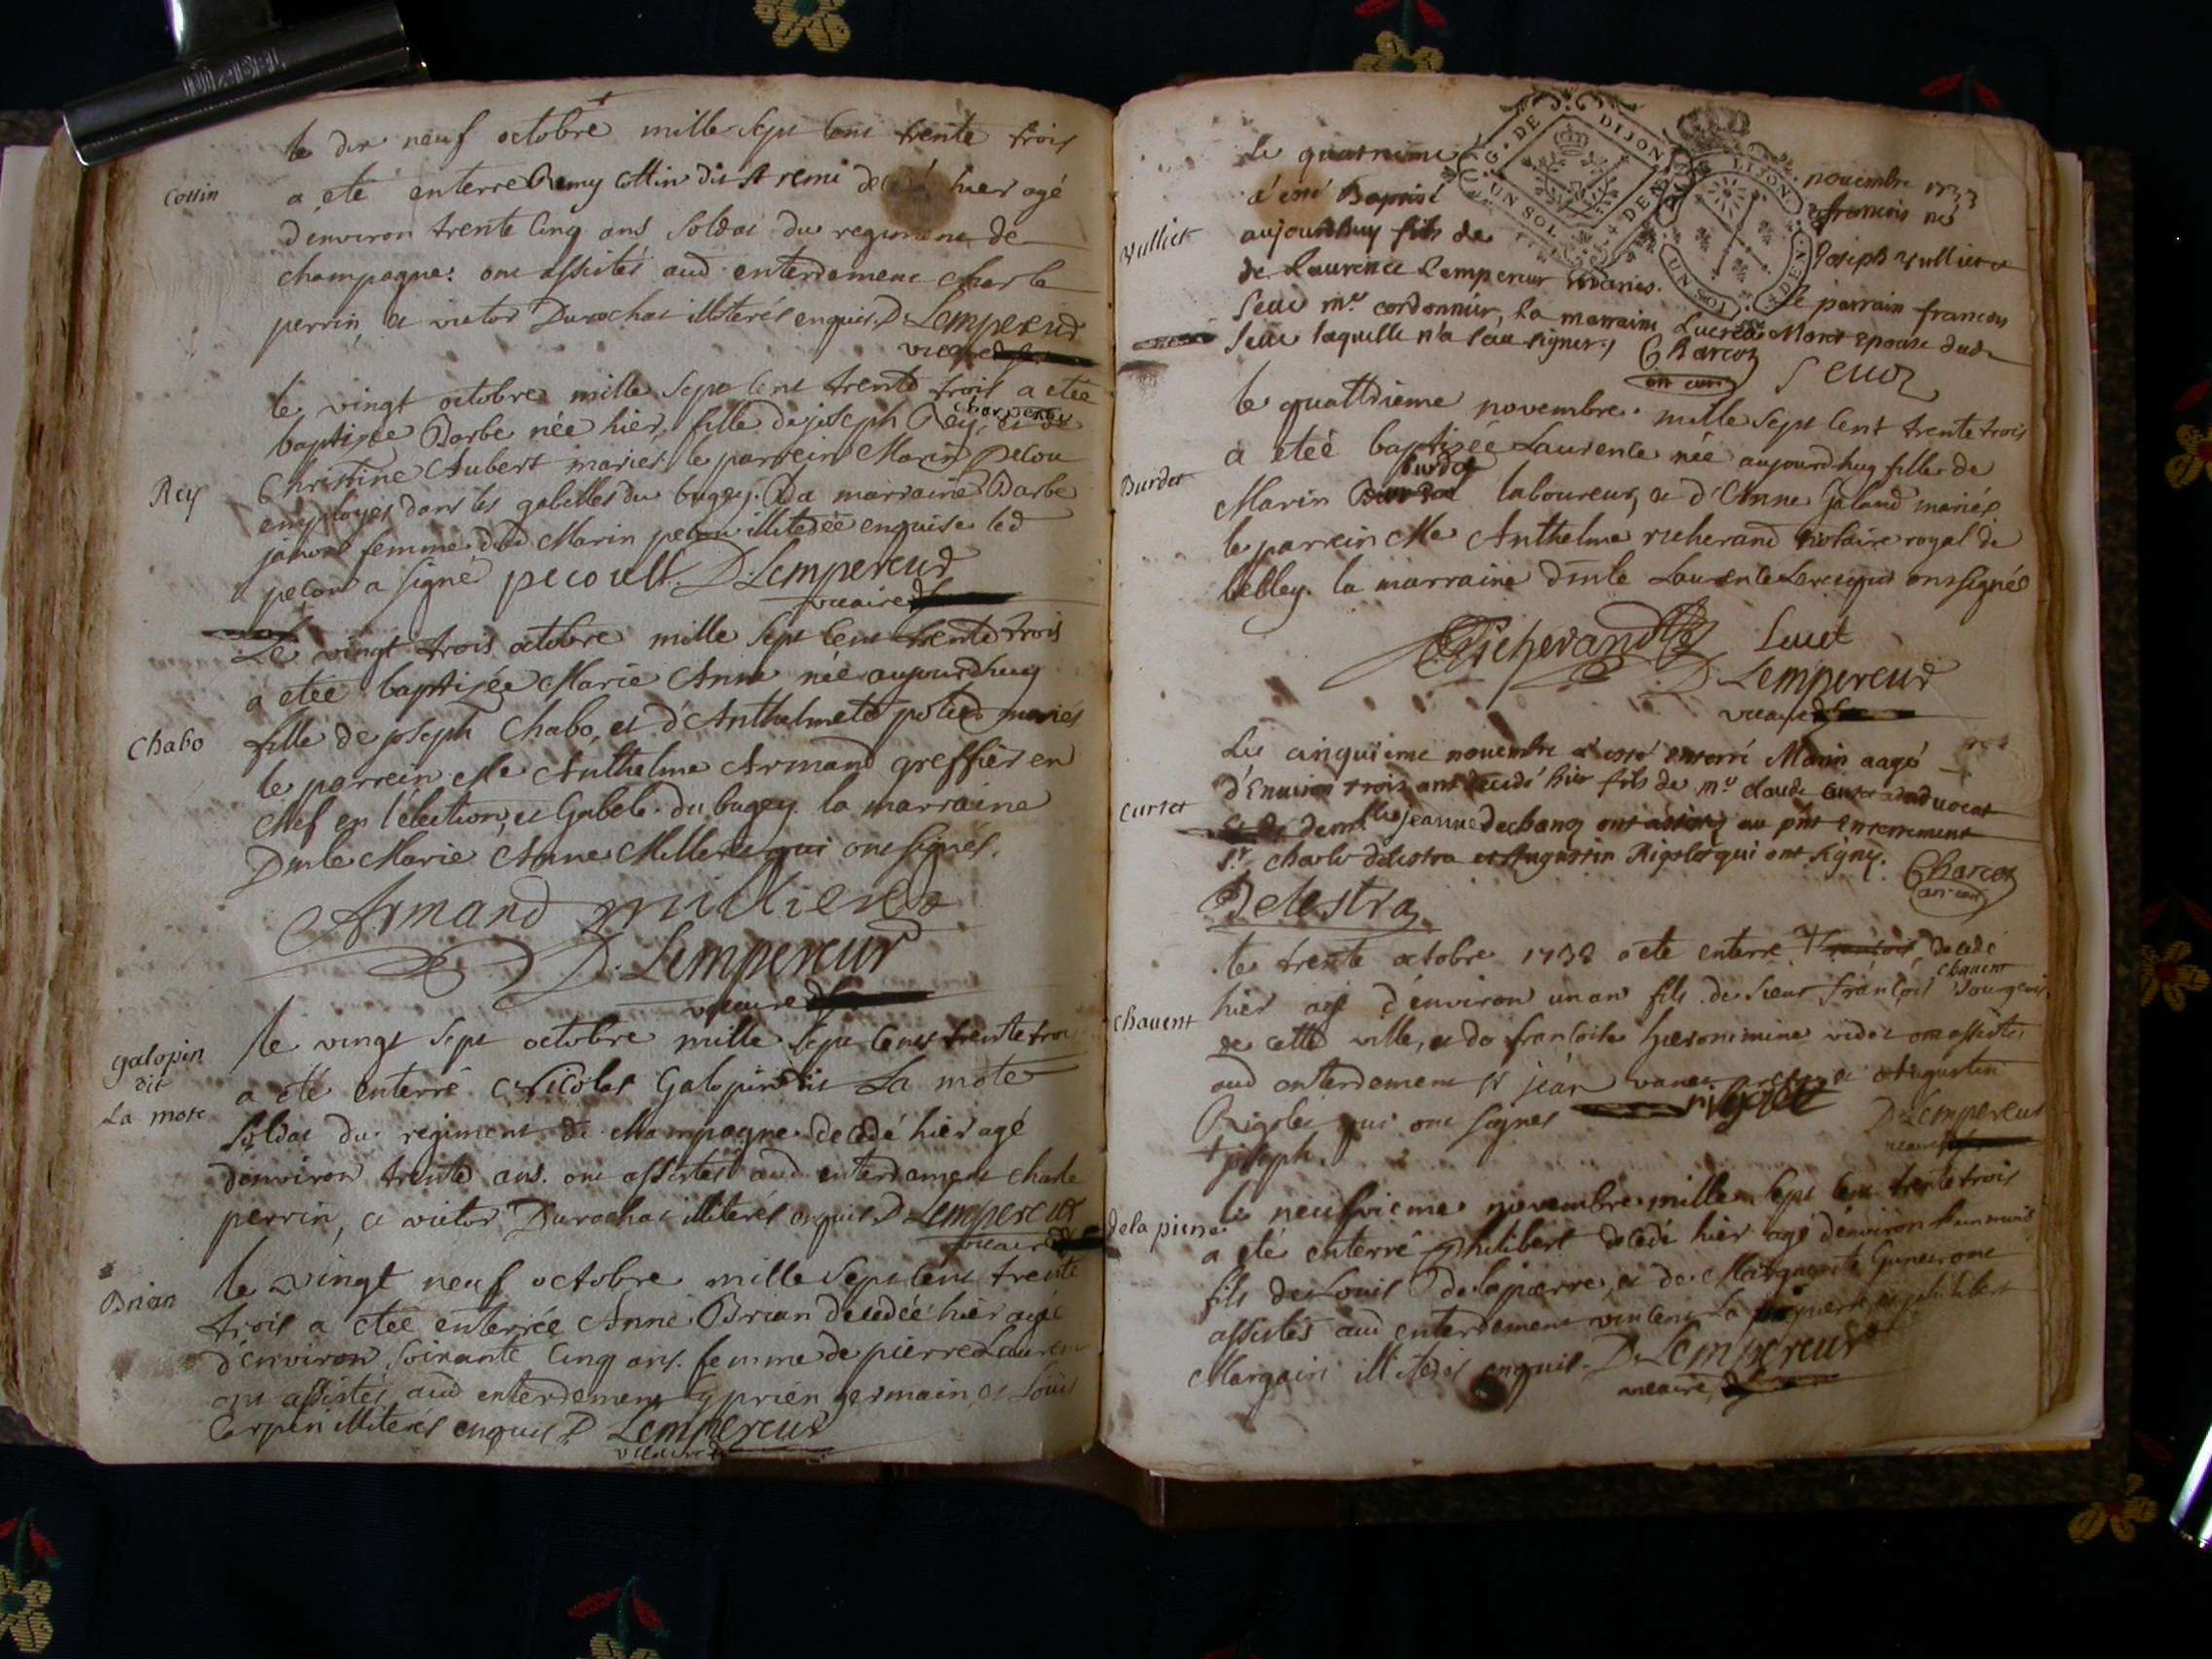 le dix neuf octobre mille sept cent trente trois
Cottin
a été enterré Remy Cottin dit st remi decedé hier agé
d'environ trente cinq ans soldat du regiment de
champagne. ont assistés aud enterrement charle
perrin, et victor Durochat illiterés enquis. D. Lempereur
vicaire
le vingt octobre mille sept cent trente trois a etée
baptisée Barbe née hier, fille de joseph Rey, charpentier et de
Christine Aubert mariés le parrein Marin pecou
Rey
employes dans les gabelles du bugey. La marraine Barbe
femme dud Marin pecou illiterée enquise led
pecou a signé pecoult. D. Lempereur
vicaire
Le vingt trois octobre mille sept cent trente trois
a etée baptisée Marie Anne née aujourdhuy
Chabo
fille de joseph Chabo, et d'Anthelmete mariés
le parrein Me Anthelme Armand greffier en
chef en l'élection, et Gabele du bugey. la marraine
Dmle Marie Anne qui ont signés.
Armand
D. Lempereur
vicaire
le vingt sept octobre mille sept cent trente trois
galopin
dit
La mote
a été enterré Nicolas Galopin dit La mote
soldat du regiment de champagne decedé hier agé
d'environ trente ans. ont assistés aud enterrement charle
perrin, et victor Durochat illiterés enquis D Lempereur
vicaire
Brian
le vingt neuf octobre mille sept cent trente
trois a etée enterrée Anne Brian decedée hier agée
d'environ soixante cinq ans. femme de pierre Laurent
ont assistés aud enterrement cyprien germain, et Loüis
Carpin illiterés enquis D Lempereur
vicaire
G. DE DIJON
UN SOL 4 DEN
DIJON
UN SOL 4 DEN
Le quatrieme novembre 1733
a esté Baptisé francois né
Vulliet
aujourdhuy fils de Joseph Vulliet et
de Laurence Lempereur mariés. Le parrain francois
Seuc mre cordonnier, la marraine Lucresse Moret epouse dud
Seuc laquelle n'a sçau signer. Charcot
Seuoz
le quattrieme novembre mille sept cent trente trois
a eteé baptisée Laurence née aujourdhuy fille de
Burdet
Marin burdet laboureur, et d'Anne Galand mariés
le parrein Me Anthelme richerand notaire royal de
belley. la marraine Dmle Laurence qui ont signés
Richerand
D. Lempereur
vicaire
Le cinquieme novembre a esté enterré Marin aagé
d'Environ trois ans decedé hier fils de mre claude advocat
Curtet
et de demlle jeanne dechanoz ont assistez au pnt enterrement
sr charles delestra et Augustin Rigolet qui ont signez. Charcot
Delestra
le trente octobre 1733 a eté enterré decedé
hier agé d'environ un an fils de sieur françois chavent bourgeois
Chavent
de cette ville, et de francoise hieronimine vidot ont assistés
aud enterrement sr jean et Augustin
Rigolet qui ont signes rigolet D Lempereur
vicaire
+ joseph.
le neufvieme novembre mille sept cent trente trois
dela pierre
a eté enterré philibert decedé hier agé d'environ
fils de Louis Delapierre, et de Marguerite
assistés aud enterrement vincent La pierre, et philibert
Margain illiterés enquis. D. Lempereur
vicaire